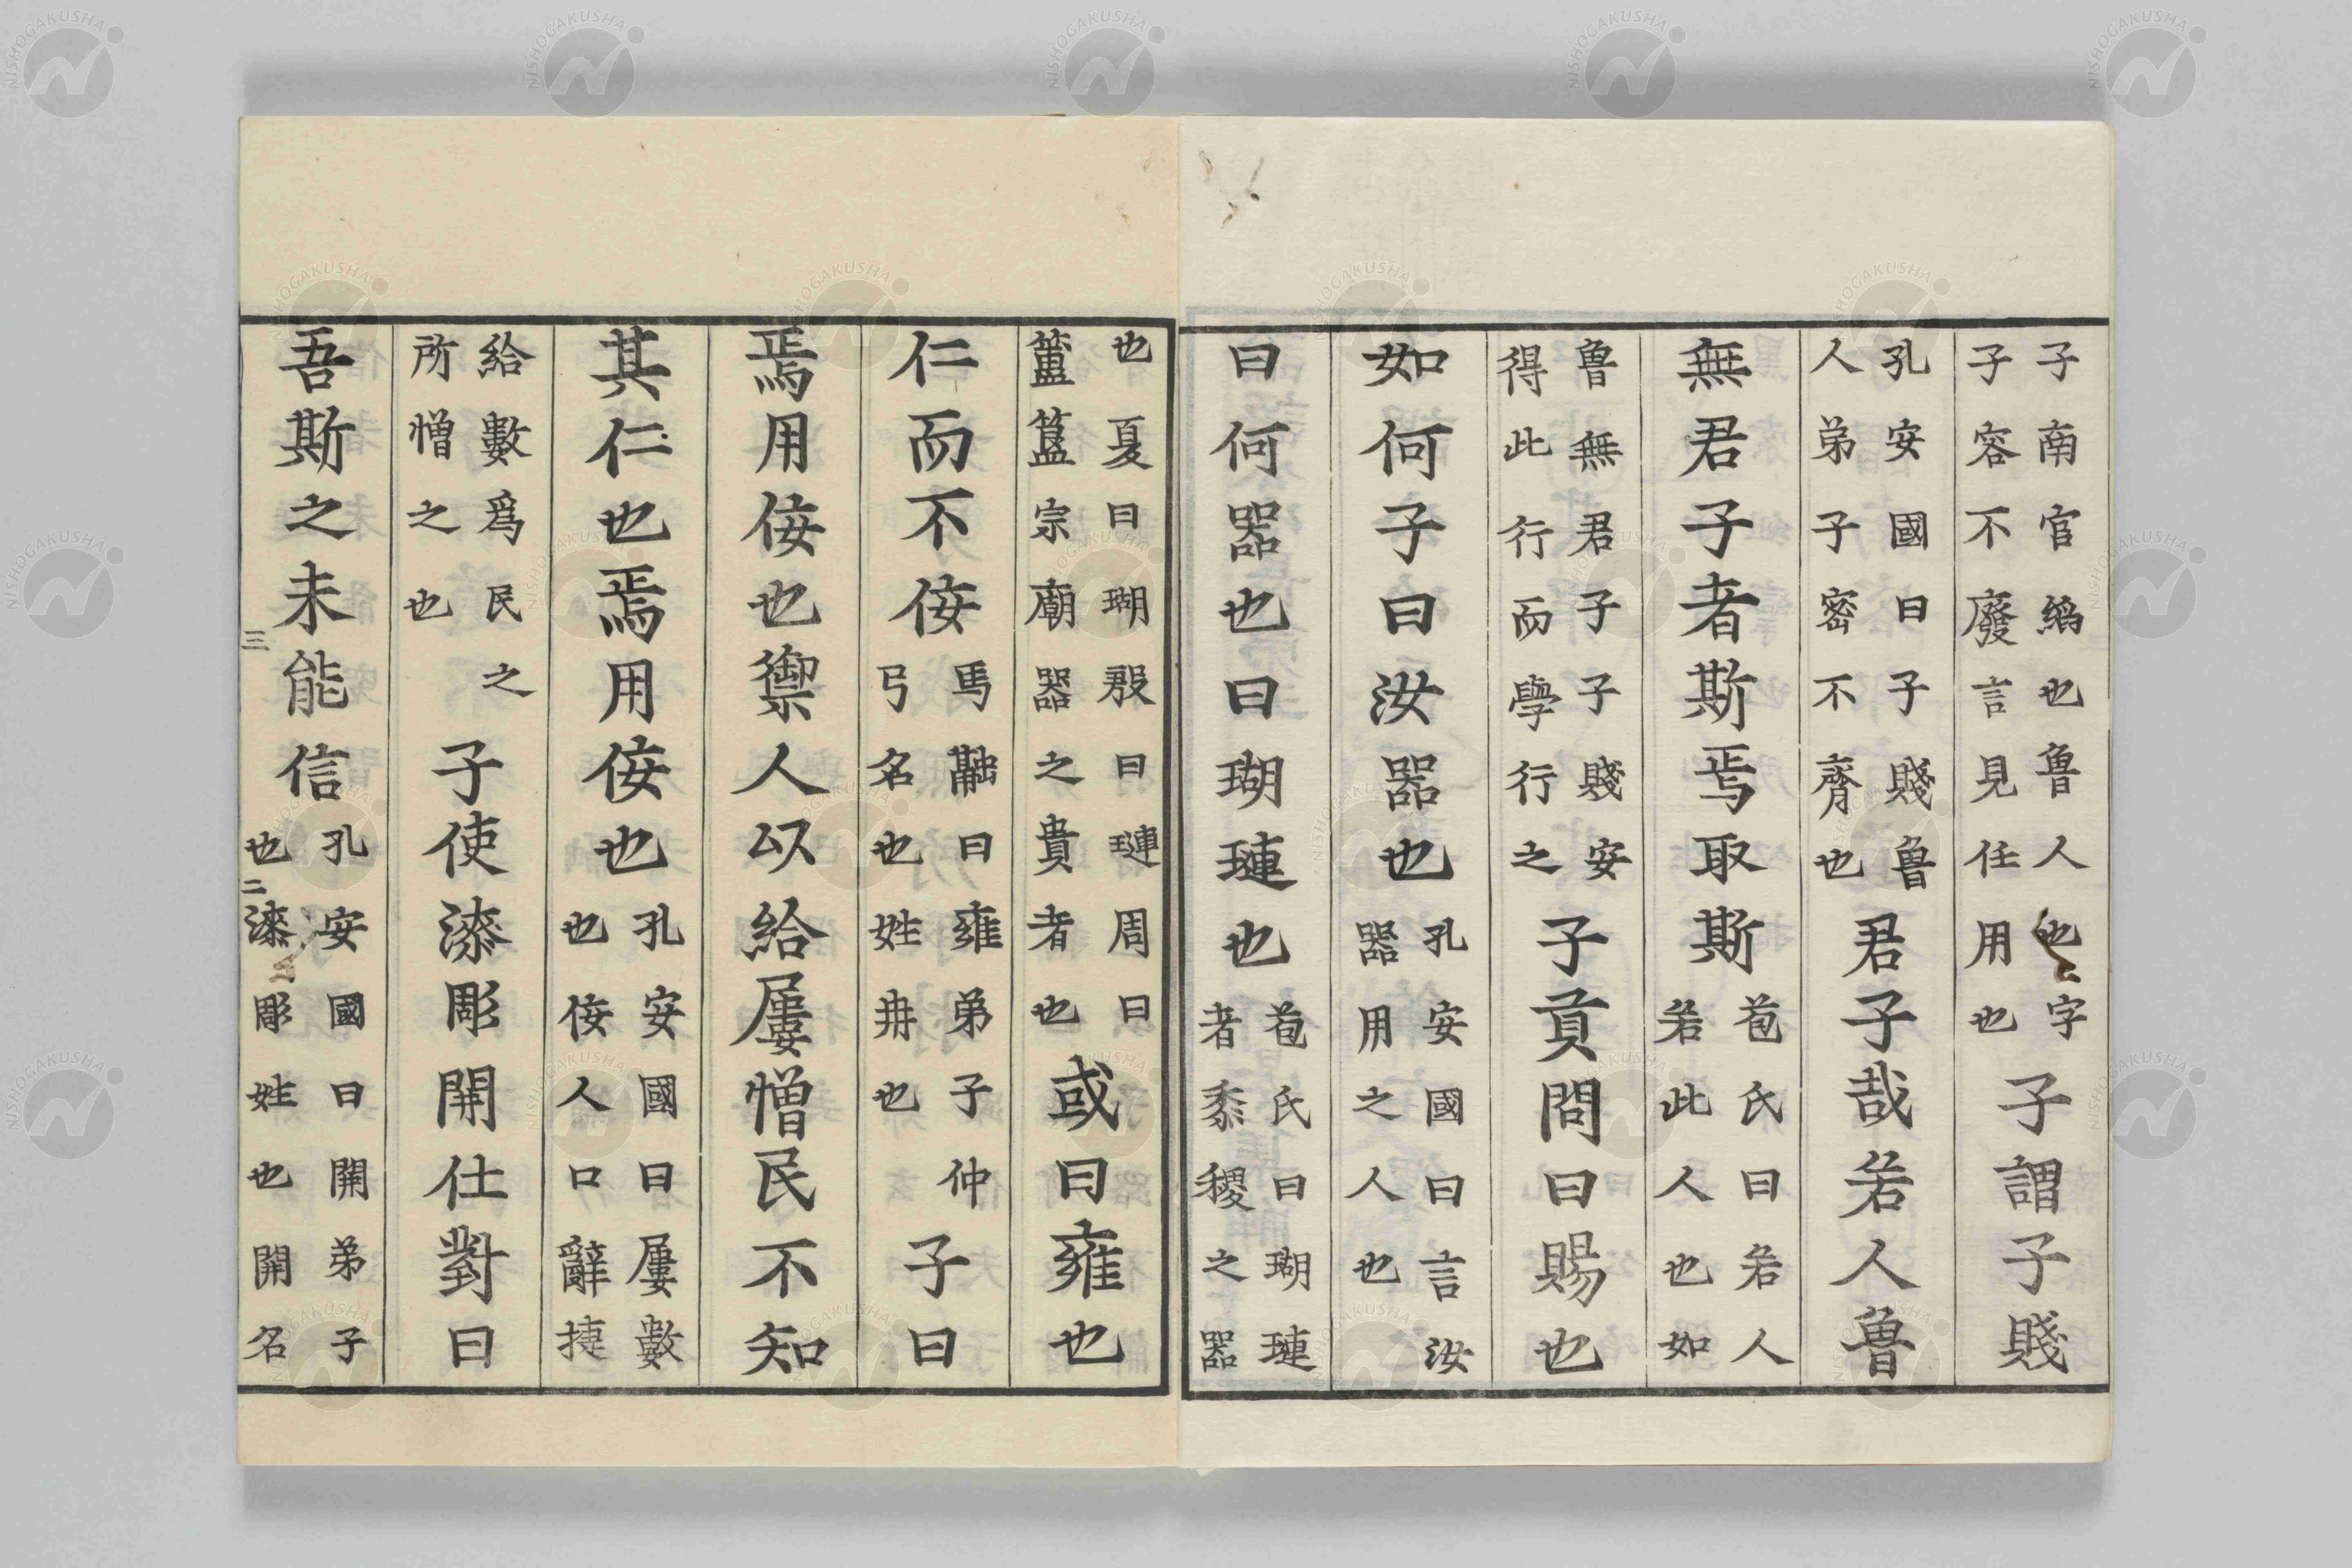 子南官縚也魯人也字子容不廢言見任用也子謂子賤
孔安國曰子賤魯人弟子密不齊也君子哉若人魯
無君子者斯焉取斯苞氏曰若人若此人也如
魯無君子子賤安得此行而學行之子貢問曰賜也
如何子曰汝器也孔安國曰言汝器用之人也
曰何器也曰瑚璉也苞氏曰瑚璉者黍稷之器
也夏曰瑚殷曰璉周曰簠簋宗廟器之貴者也或曰雍也
仁而不佞馬融曰雍弟子仲弓名也姓冉也子曰
焉用佞也禦人以給屢憎民不知
其仁也焉用佞也孔安國曰屢數也佞人口辭捷
給數爲民之所憎之也子使漆彫開仕對曰
吾斯之未能信孔安國曰開弟子也漆彫姓也開名
三
二
NISHOGAKUSHA